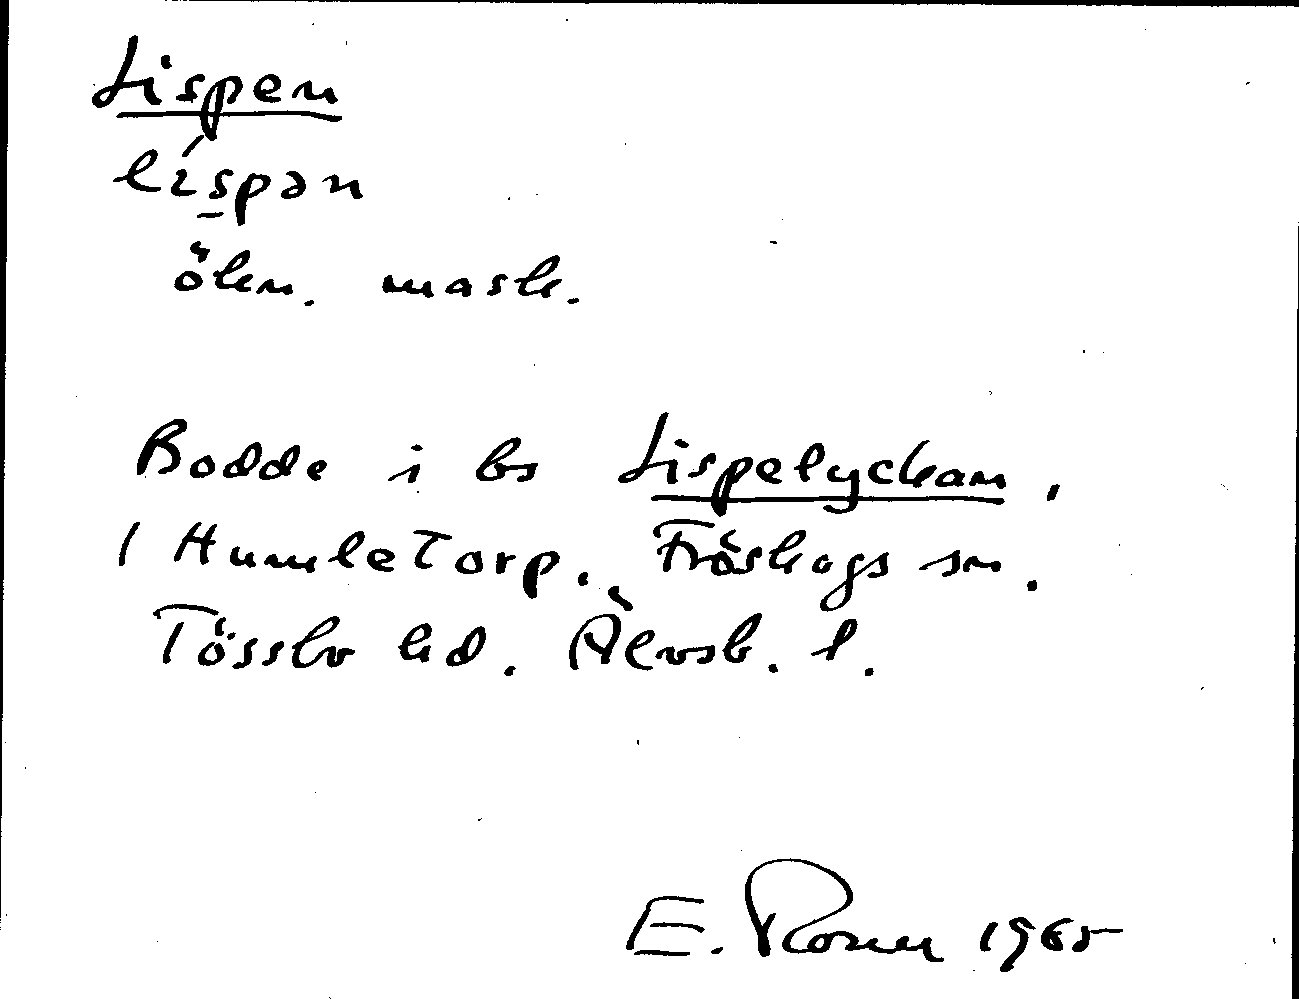 Lispen
lispən
ökn. mask.
Bodde i bs Lispelyckan,
/ Humletorp. Fröskogs sn.
Tössbo hd. Älvsb. l.
E. 1965